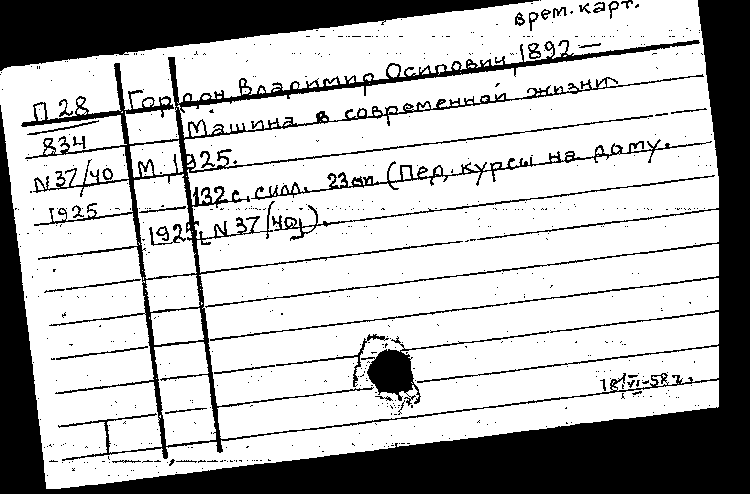 врем. карт.
П 28 Гордон, Владимир Осипович, 1892 —
834 Машина в современной жизни.
N37/40 М., 1925.
1925 132 с. с илл. 23 см. (Пед. курсы на дому.
1925, N 37/40).
18/VI-58 г.